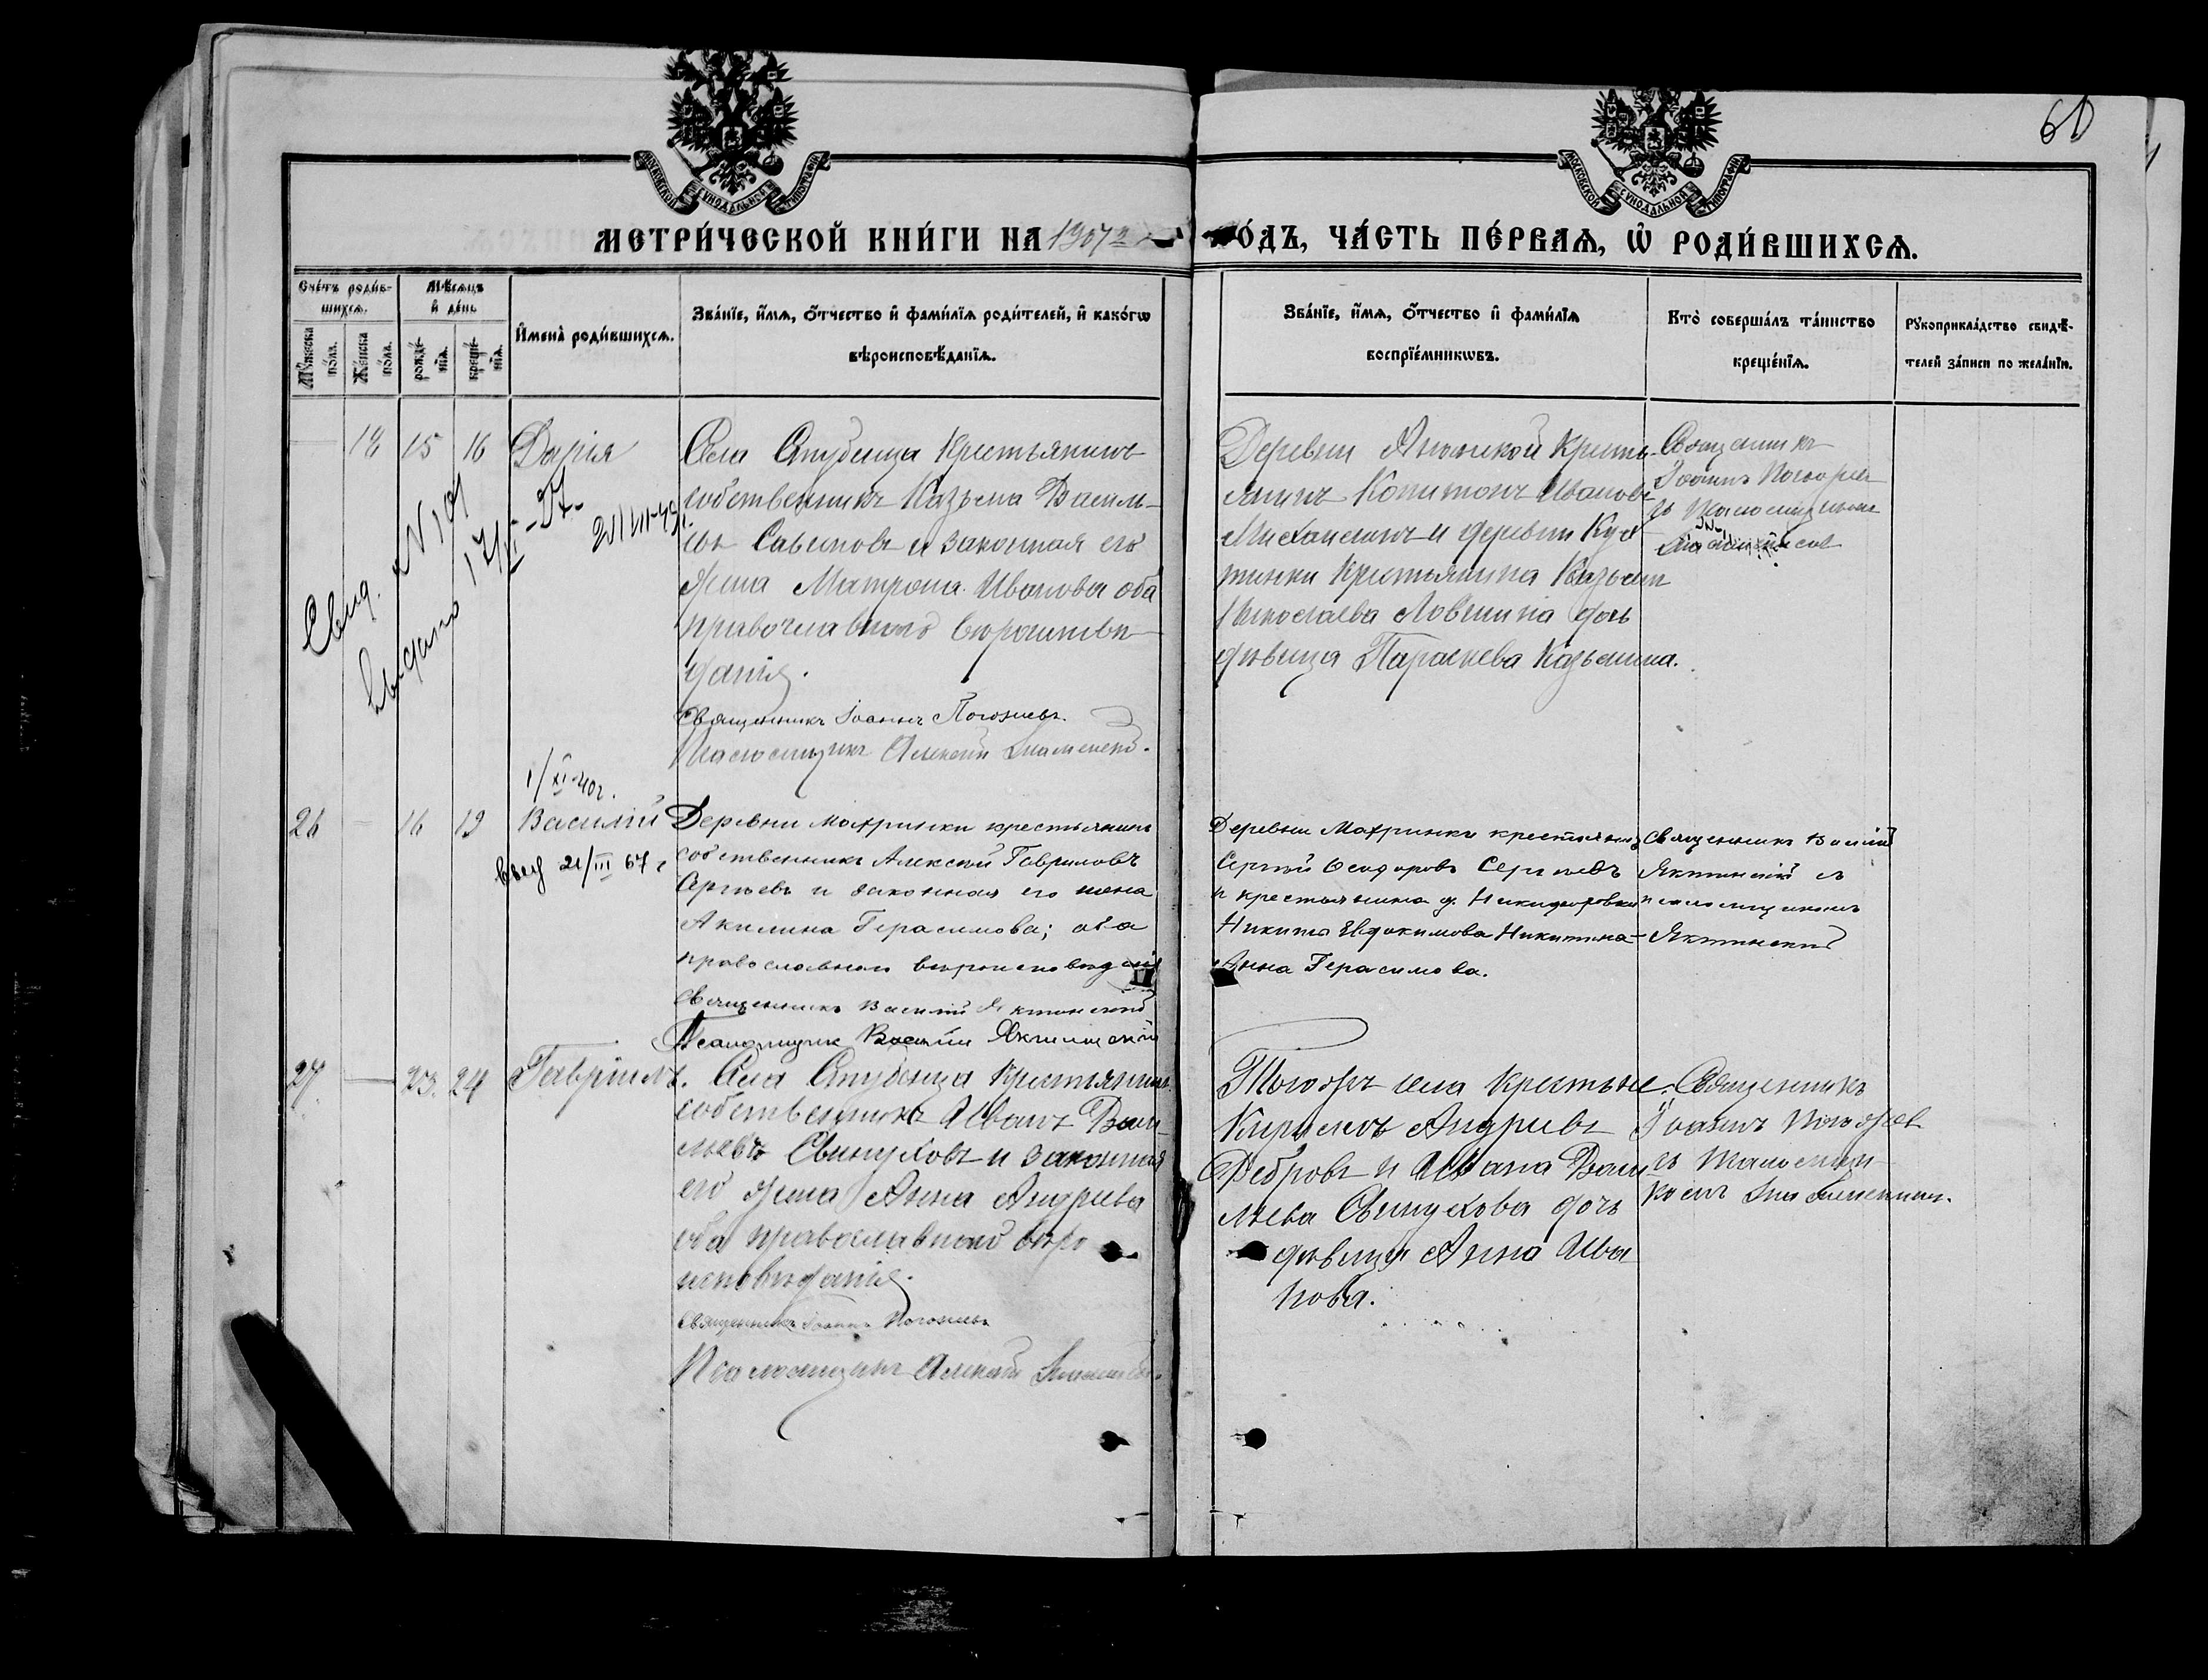 60
МОСКОВСКОЙ СУНОДАЛЬНОЙ ТИПОГРАФІИ
МОСКОВСКОЙ СУНОДАЛЬНОЙ ТИПОГРАФІИ
МЕТРИ́ЧЕСКОЙ КНИ́ГИ НА 1907 й
ГО́ДЪ, ЧА́СТЬ ПЕ́РВАѦ, Ѽ РОДИ́ВШИХСѦ.
Сче́тъ роди́в-
шихсѧ.
Мꙋ́жеска по́ла.
Же́нска по́ла.
Мѣ́сѧцъ
и҆ де́нь
рожде́-
нїѧ.
креще́-
нїѧ.
И҆мена̀ роди́вшихсѧ.
Зва́нїе, и҆́мѧ, ѻ҆́тчество и҆ фами́лїѧ роди́телей, и҆ како́гѡ
вѣроисповѣ́данїѧ.
Зва́нїе, и҆́мѧ, ѻ҆́тчество и҆ фами́лїѧ
воспрїе́мникѡвъ.
Кто̀ соверша́лъ та́инство
креще́нїѧ.
Рꙋкоприкла́дство свидѣ́-
телей за́писи по жела́нїю.
18 15 16 Дарія
Села Студенца крестьянинъ
собственникъ Казьма Василь-
евъ Савиновъ и законная его
жена Матрона Иванова оба
православнаго вѣроисповѣ-
данія.
Священникъ Іоаннъ Погожевъ.
Псаломщикъ Алексѣй Знаменскій.
Свид. № 101
выдано 17/VI-27.
21/VII-49г.
Деревни крестья-
янинъ Капитонъ Ивановъ
Михаилинъ и деревни Кух-
тинки крестьянина Казьмы
Николаева Ловшина дочь
дѣвица Параскева Казьмина.
Священникъ
Іоаннъ Погожевъ
съ псаломщикомъ
1/XI-40г.
26 — 16 19 Василій
21/III 67 г
Деревни Мохринки крестьянинъ
собственникъ Алексѣй Гавриловъ
Сергѣевъ и законная его жена
Акилина Герасимова; оба
православнаго вѣроисповѣданія
Священникъ Василій Яхтинскій
Псаломщикъ Василій Яхтинскій
Деревни Мохринки крестьянинъ
Сергѣй Ѳеодоровъ Сергѣевъ
и крестьянина д. Никифоровки
Никиты Евдокимова Никитина-
Анна Герасимова.
Священникъ Василій
Яхтинскій съ
псаломщикомъ
Яхтинскій
27 — 23. 24 Гавріилъ.
Села Студенца крестьянинъ
собственникъ Иванъ Васи-
льевъ Свинуховъ и законная
его жена Анна Андреева
оба православнаго вѣро
исповѣданія.
Священникъ Іоаннъ Погожевъ
Псаломщикъ Алексѣй Знаменскій.
Тогожъ села крестьяне:
Кириллъ Андреевъ
Ребровъ и Ивана Васи-
льева Свинухова дочь
дѣвица Анна Ива
нова.
Священникъ
Іоаннъ Погожевъ
съ псаломщи-
комъ Знаменским.